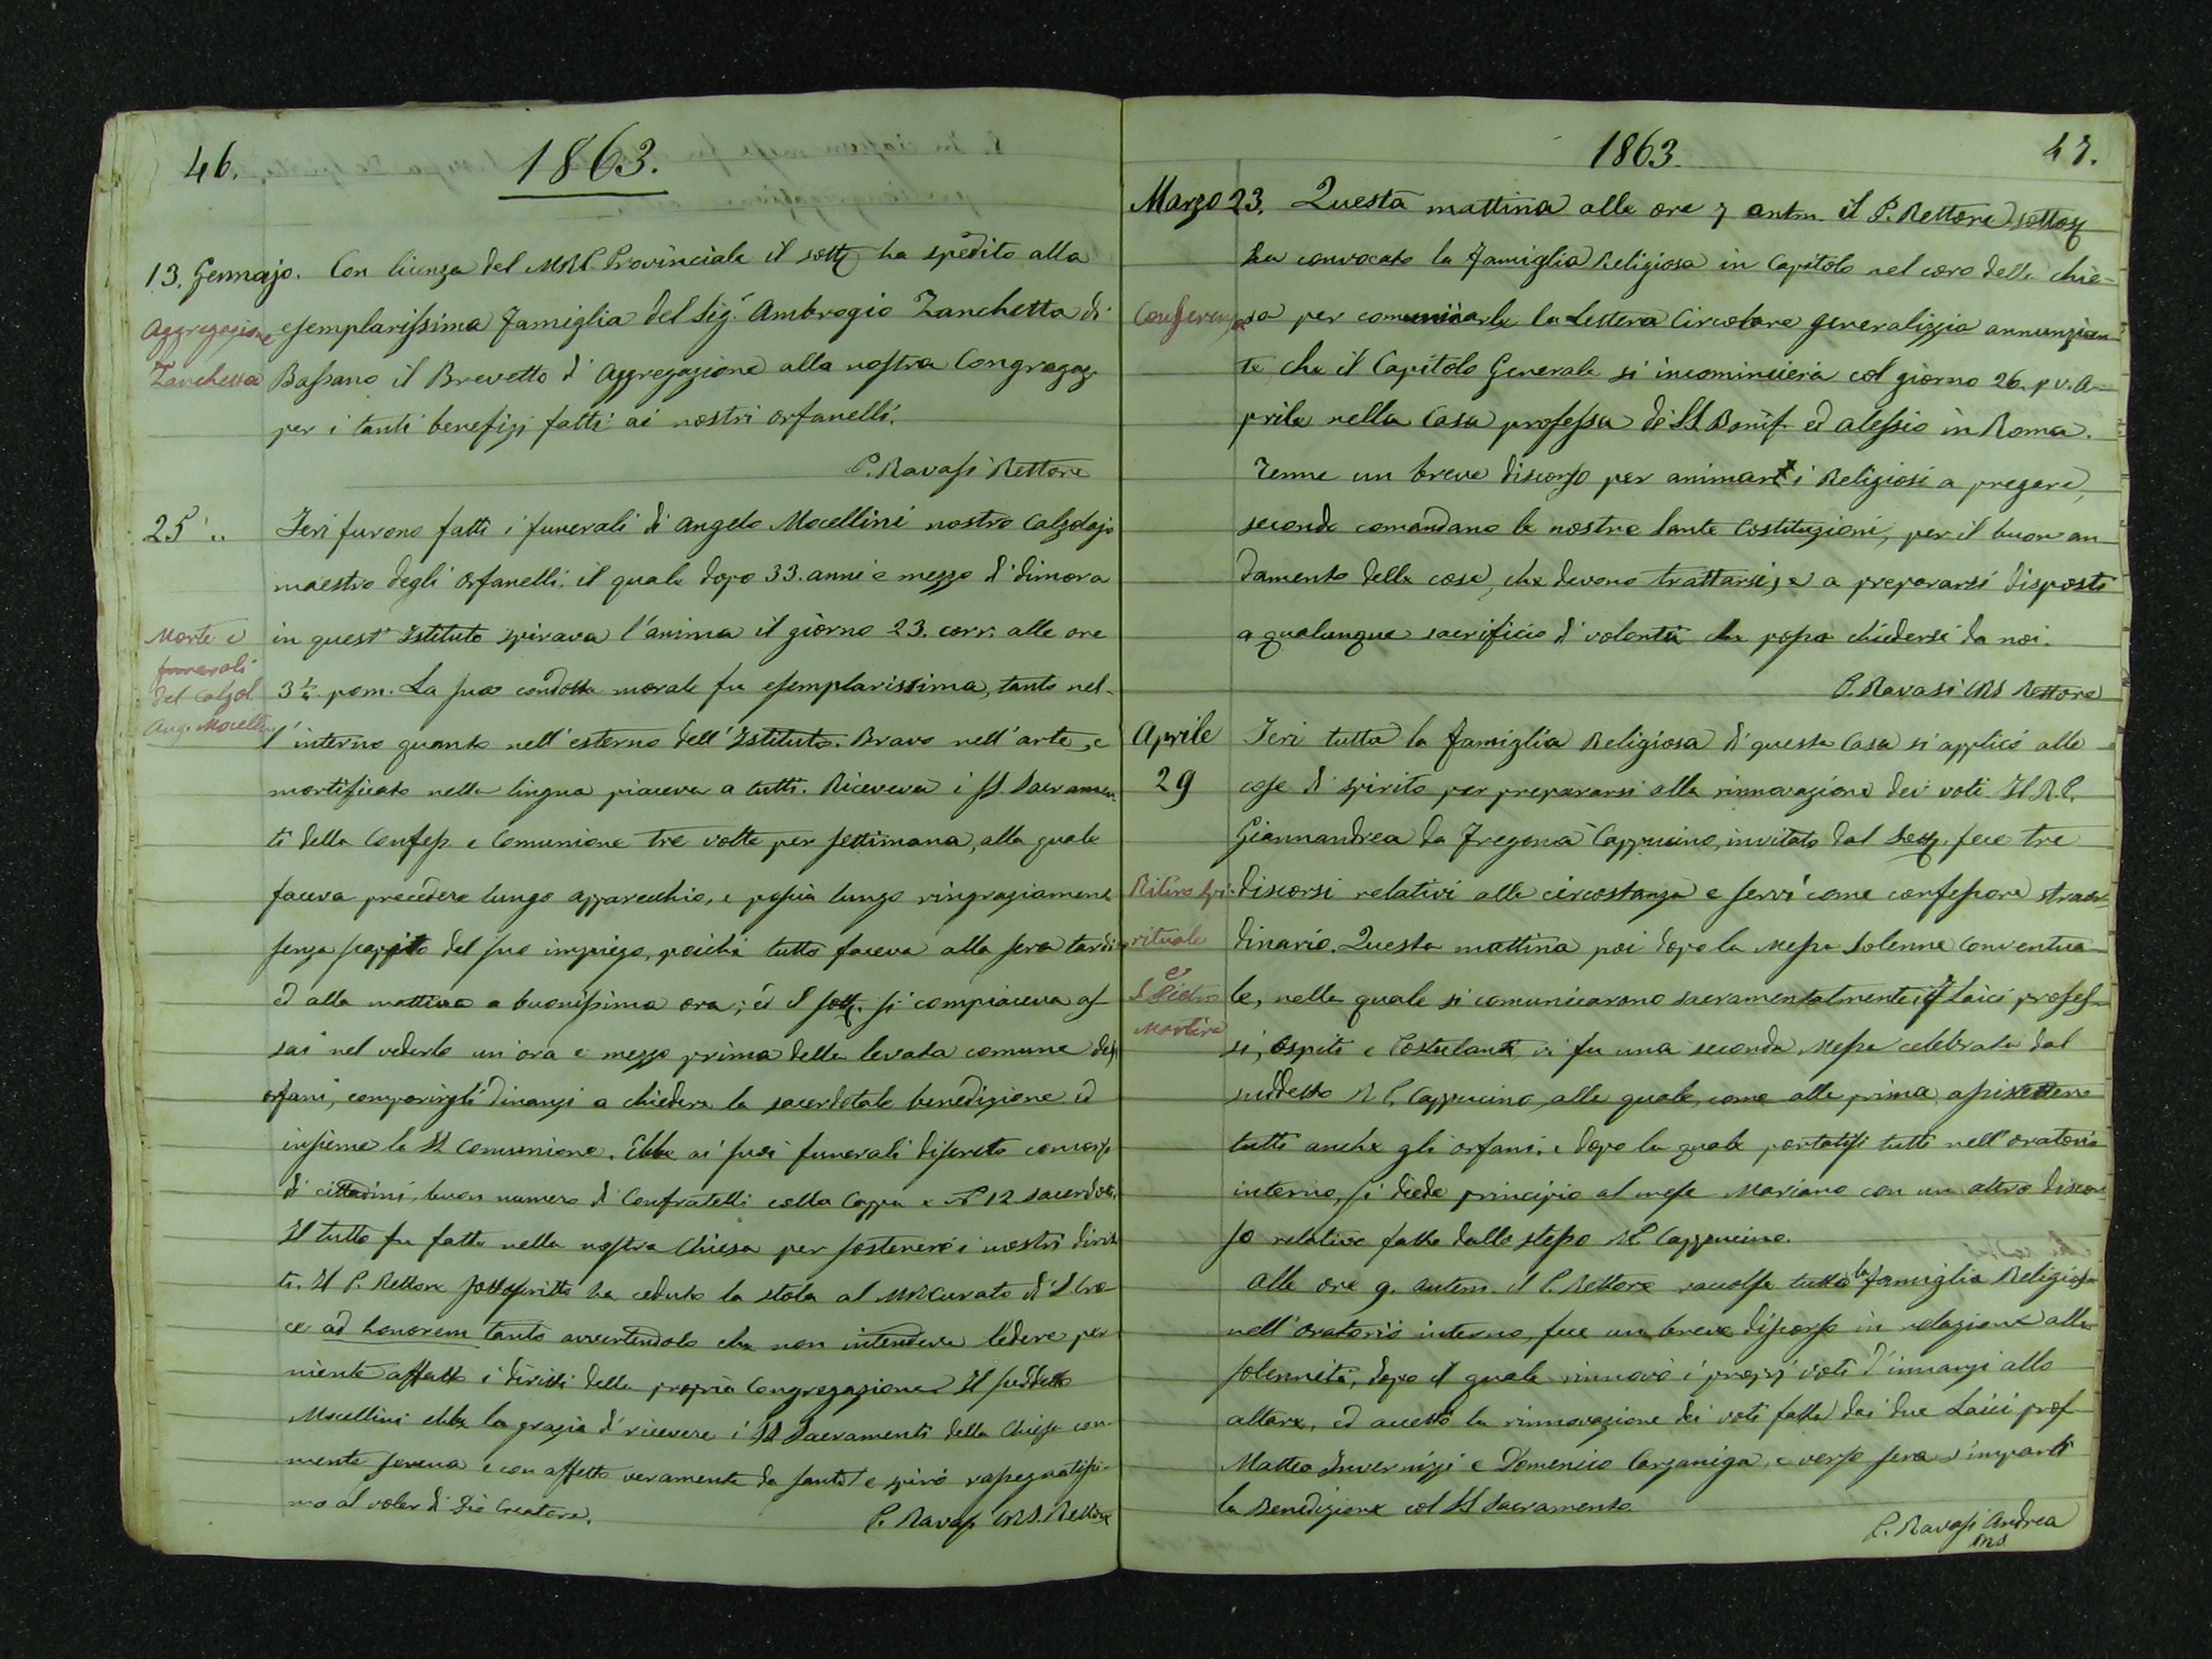 46.
1863.
13. Gennajo. Con licenza del M.R.P. Provinciale il sottº ha spedito alla
Aggregazione
Zanchetta
esemplarissima famiglia del Sig.r Ambrogio Zanchetta di
Bassano il Brevetto d'Aggregazione alla nostra Congregaz.
per i tanti benefizj fatti ai nostri orfanelli.
P. Ravasi Rettore
25 "
Jeri furono fatti i funerali di Angelo Mocellini nostro Calzolajo
maestro degli Orfanelli, il quale dopo 33. anni e mezzo di dimora
Morte e
funerali
del Calzol.
Ang. Mocellini
in quest' Istituto spirava l'anima il giorno 23. corr. alle ore
3 ½ pom. La sua condotta morale fu esemplarissima, tanto nel-
l'interno quanto nell'esterno dell'Istituto. Bravo nell'arte, e
mortificato nella lingua piaceva a tutti. Riceveva i SS. Sacramen
ti della Confess. e Comunione tre volte per settimana, alla quale
faceva precedere lungo apparecchio, e poscia lungo ringraziamento
senza scapito del suo impiego, poichè tutto faceva alla sera tardi
ed alla mattina a buonissima ora; ed il sottº. si compiaceva as-
sai nel vederlo un'ora e mezzo prima della levata comune degli
orfani, comparirgli dinanzi a chiedere la sacerdotale benedizione ed
insieme la SS. Comunione. Ebbe ai suoi funerali discreto concorso
di cittadini, buon numero di Confratelli colla Cappa e Nº 12 Sacerdoti.
Il tutto fu fatto nella nostra Chiesa per sostenere i nostri dirit
ti. Il P. Rettore sottoscritto ha ceduto la stola al M.R. Curato di S. Cro-
ce ad honorem tanto avvertendolo che non intendeva ledere per
niente affatto i diritti della propria Congregazione. Il suddetto
Mocellini ebbe la grazia di ricevere i SS. Sacramenti della Chiesa con
mente serena e con affetto veramente da santo e spirò rassegnatissi-
mo al voler di Dio Creatore.
P. Ravasi CRS. Rettore
1863.
47.
Marzo 23. Questa mattina alle ore 7 antm. il P. Rettore sottosº
ha convocato la famiglia Religiosa in Capitolo nel coro della chie-
Conferenza
sa per comunicarle la Lettera Circolare generalizia annunzian-
te che il Capitolo Generale si incomincierà col giorno 26. p.v. A-
prile nella Casa professa de' SS. Bonif. ed Alessio in Roma.
Tenne un breve discorso per animare i Religiosi a pregare,
secondo comandano le nostre Sante Costituzioni, per il buon an-
damento delle cose, che devono trattarsi, e a prepararsi disposti
a qualunque sacrificio di volontà che possa chiedersi da noi.
P. Ravasi CRS Rettore
Aprile
29
Jeri tutta la famiglia Religiosa di questa Casa si applicò alle
cose di spirito per prepararsi alla rinnovazione dei voti. Il R.P.
Giannandrea da Fregona Cappucino, invitato dal Sottº. fece tre
Ritiro Spi-
rituale
e
S. Pietro
Martire
discorsi relativi alla circostanza e servì come confessore straor-
dinario. Questa mattina poi dopo la Messa solenne Conventua-
le, nella quale si comunicarono sacramentalmente i Laici profes-
si, Ospiti e Postulanti, vi fu una seconda Messa celebrata dal
suddetto R.P. Cappucino, alla quale, come alla prima, assistettero
tutti anche gli orfani, e dopo la quale portatisi tutti nell'oratorio
interno, si diede principio al mese Mariano con un altro discor-
so relativo fatto dallo stesso R.P. Cappucino.
Alle ore 9. antem. il P. Rettore raccolse tutta la famiglia Religiosa
nell'oratorio interno, fece un breve discorso in relazione alla
solennità, dopo il quale rinnovò i proprj voti d'innanzi allo
altare, ed accettò la rinnovazione dei voti fatta dai due Laici prof.
Matteo Invernizzi e Domenico Carzaniga, e verso sera s'impartì
la Benedizione col SS. Sacramento.
P. Ravasi Andrea
CRS